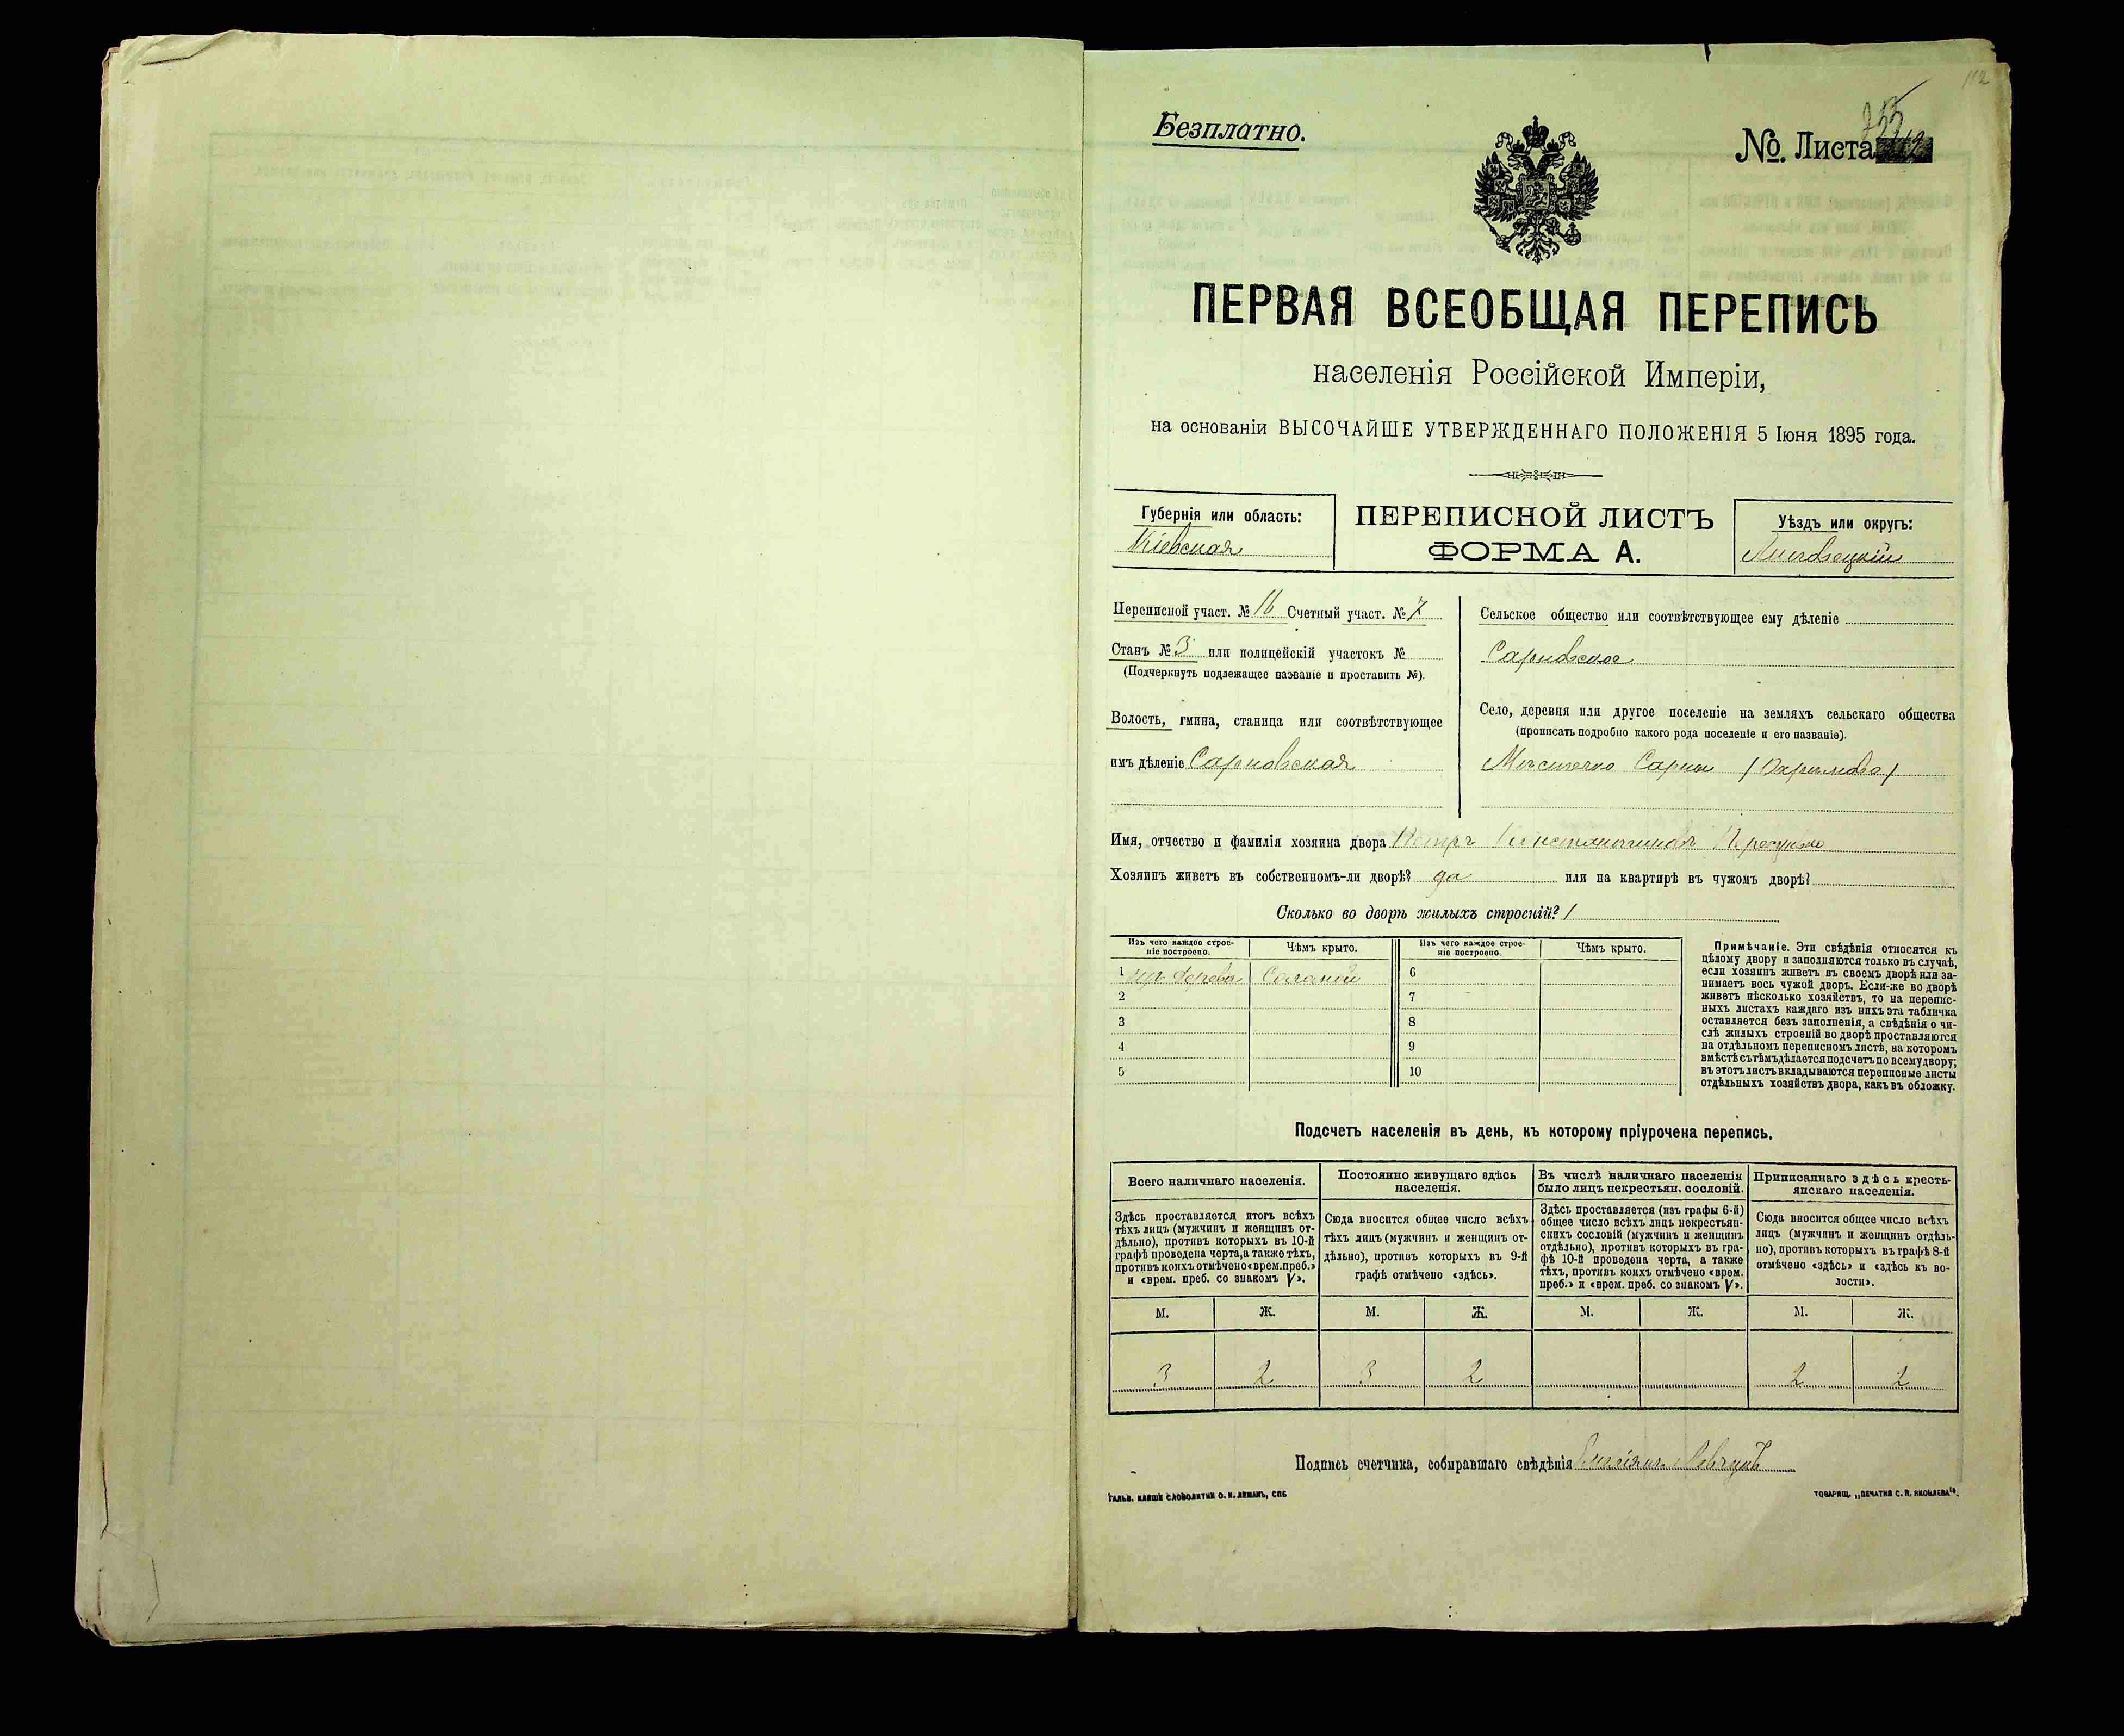 112
Безплатно.
№. Листа
ПЕРВАЯ ВСЕОБЩАЯ ПЕРЕПИСЬ
населенія Россійской Имперіи,
на основаніи ВЫСОЧАЙШЕ УТВЕРЖДЕННАГО ПОЛОЖЕНІЯ 5 Іюня 1895 года.
Губернія или область:
Кіевская
ПЕРЕПИСНОЙ ЛИСТЪ
ФОРМА А.
Уѣздъ или округъ:
Липовецкій
Переписной участ. № 16 Счетный участ. № 7
Станъ № 3 или полицейскій участокъ №
(Подчеркнуть подлежащее названіе и проставить №).
Волость, гмина, станица или соотвѣтствующее
имъ дѣленіе Сарновская
Сельское общество или соотвѣтствующее ему дѣленіе
Сарновское
Село, деревня или другое поселеніе на земляхъ сельскаго общества
(прописать подробно какого рода поселеніе и его названіе).
Мѣстечко Сарны
Имя, отчество и фамилія хозяина двора Петръ Константиновъ
Хозяинъ живетъ въ собственномъ-ли дворѣ? да или на квартирѣ въ чужомъ дворѣ?
Сколько во дворѣ жилыхъ строеній? 1
Изъ чего каждое строеніе построено.
Чѣмъ крыто.
Изъ чего каждое строеніе построено.
Чѣмъ крыто.
1 изъ дерева Соломой 6
2 7
3 8
4 9
5 10
Примѣчаніе. Эти свѣдѣнія относятся къ
цѣлому двору и заполняются только въ случаѣ,
если хозяинъ живетъ въ своемъ дворѣ или за-
нимаетъ весь чужой дворъ. Если-же во дворѣ
живетъ нѣсколько хозяйствъ, то на перепис-
ныхъ листахъ каждаго изъ нихъ эта табличка
оставляется безъ заполненія, а свѣдѣнія о чи-
слѣ жилыхъ строеній во дворѣ проставляются
на отдѣльномъ переписномъ листѣ, на которомъ
вмѣстѣ съ тѣмъ дѣлается подсчетъ по всему двору;
въ этотъ листъ вкладываются переписные листы
отдѣльныхъ хозяйствъ двора, какъ въ обложку.
Подсчетъ населенія въ день, къ которому пріурочена перепись.
Всего наличнаго населенія.
Здѣсь проставляется итогъ всѣхъ
тѣхъ лицъ (мужчинъ и женщинъ от-
дѣльно), противъ которыхъ въ 10-й
графѣ проведена черта, а также тѣхъ,
противъ коихъ отмѣчено «врем. преб.»
и «врем. преб. со знакомъ V».
Постоянно живущаго здѣсь
населенія.
Сюда вносится общее число всѣхъ
тѣхъ лицъ (мужчинъ и женщинъ от-
дѣльно), противъ которыхъ въ 9-й
графѣ отмѣчено «здѣсь».
Въ числѣ наличнаго населенія
было лицъ некрестьян. сословій.
Здѣсь проставляется (изъ графы 6-й)
общее число всѣхъ лицъ некрестьян-
скихъ сословій (мужчинъ и женщинъ
отдѣльно), противъ которыхъ въ гра-
фѣ 10-й проведена черта, а также
тѣхъ, противъ коихъ отмѣчено «врем.
преб.» и «врем. преб. со знакомъ V».
Приписаннаго здѣсь кресть-
янскаго населенія.
Сюда вносится общее число всѣхъ
лицъ (мужчинъ и женщинъ отдѣль-
но), противъ которыхъ въ графѣ 8-й
отмѣчено «здѣсь» и «здѣсь къ во-
лости».
М. Ж. М. Ж. М. Ж. М. Ж.
3 2 3 2 2 2
Подпись счетчика, собиравшаго свѣдѣнія
ГАЛЬВ. КЛИШЕ СЛОВОЛИТНИ О. И. ЛЕМАНЪ, СПБ
ТОВАРИЩ. „ПЕЧАТНЯ С. П. ЯКОВЛЕВА“.